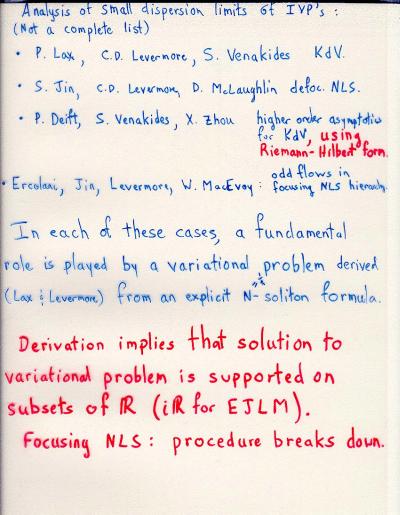 Analysis of small dispersion limits of IVP's :
(Not a complete list)
• P. Lax, C.D. Levermore, S. Venakides KdV.
• S. Jin, C.D. Levermore, D. McLaughlin defoc. NLS.
• P. Deift, S. Venakides, X. Zhou higher order asymptotics
for KdV, using
Riemann-Hilbert form.
• Ercolani, Jin, Levermore, W. MacEvoy : odd flows in
focusing NLS hierarchy.
In each of these cases, a fundamental
role is played by a variational problem derived
(Lax & Levermore) from an explicit N-soliton formula.
Derivation implies that solution to
variational problem is supported on
subsets of ℝ (iℝ for EJLM).
Focusing NLS : procedure breaks down.